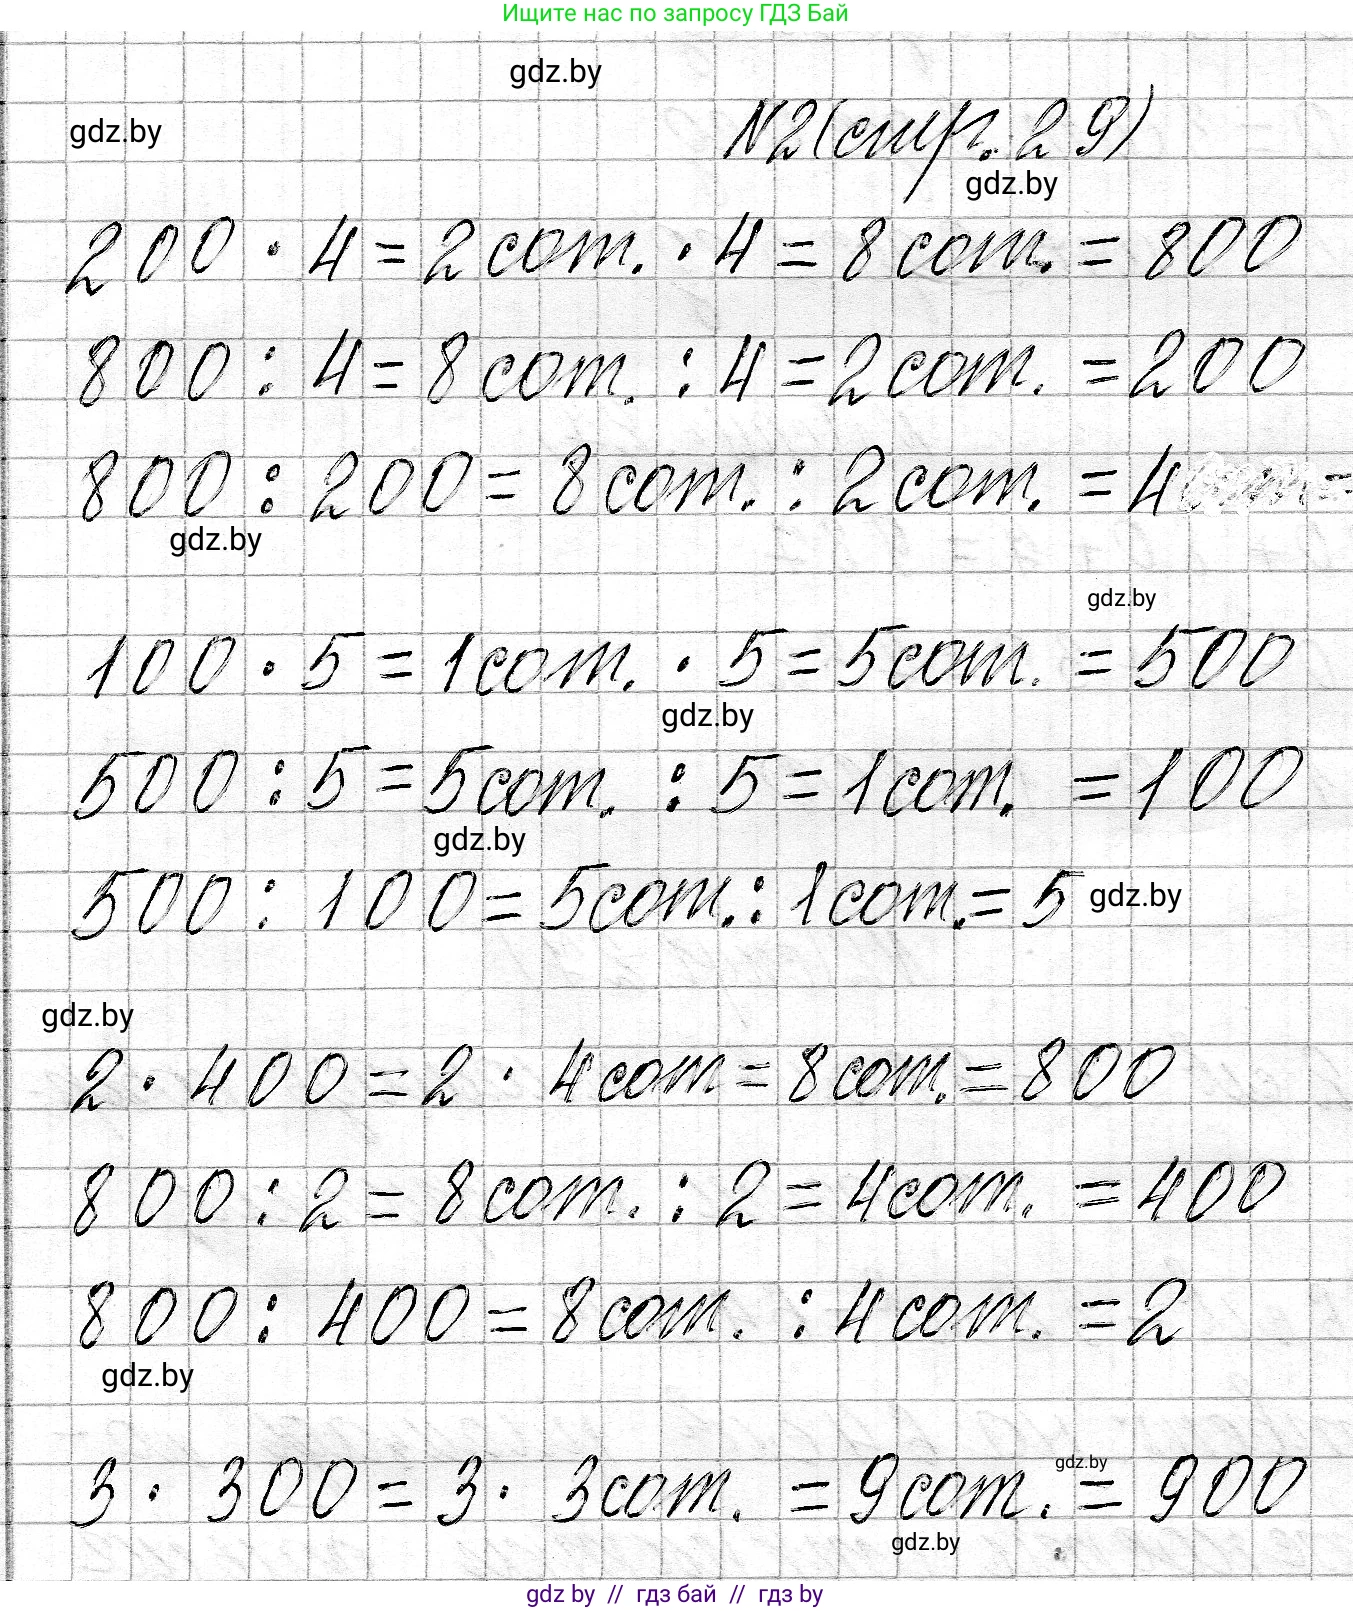 Ищите нас по запросу ГДЗ Бай
gdz.by
gdz.by
N2 (стр. 29)
gdz.by
200 · 4 = 2 сот. · 4 = 8 сот. = 800
800 : 4 = 8 сот. : 4 = 2 сот. = 200
800 : 200 = 8 сот. : 2 сот. = 4
gdz.by
gdz.by
100 · 5 = 1 сот. · 5 = 5 сот. = 500
gdz.by
500 : 5 = 5 сот. : 5 = 1 сот. = 100
gdz.by
500 : 100 = 5 сот. : 1 сот. = 5 gdz.by
gdz.by
2 · 400 = 2 · 4 сот = 8 сот. = 800
800 : 2 = 8 сот. : 2 = 4 сот. = 400
800 : 400 = 8 сот. : 4 сот. = 2
gdz.by
gdz.by
3 · 300 = 3 · 3 сот. = 9 сот. = 900
gdz.by
gdz by // гдз бай // гдз by